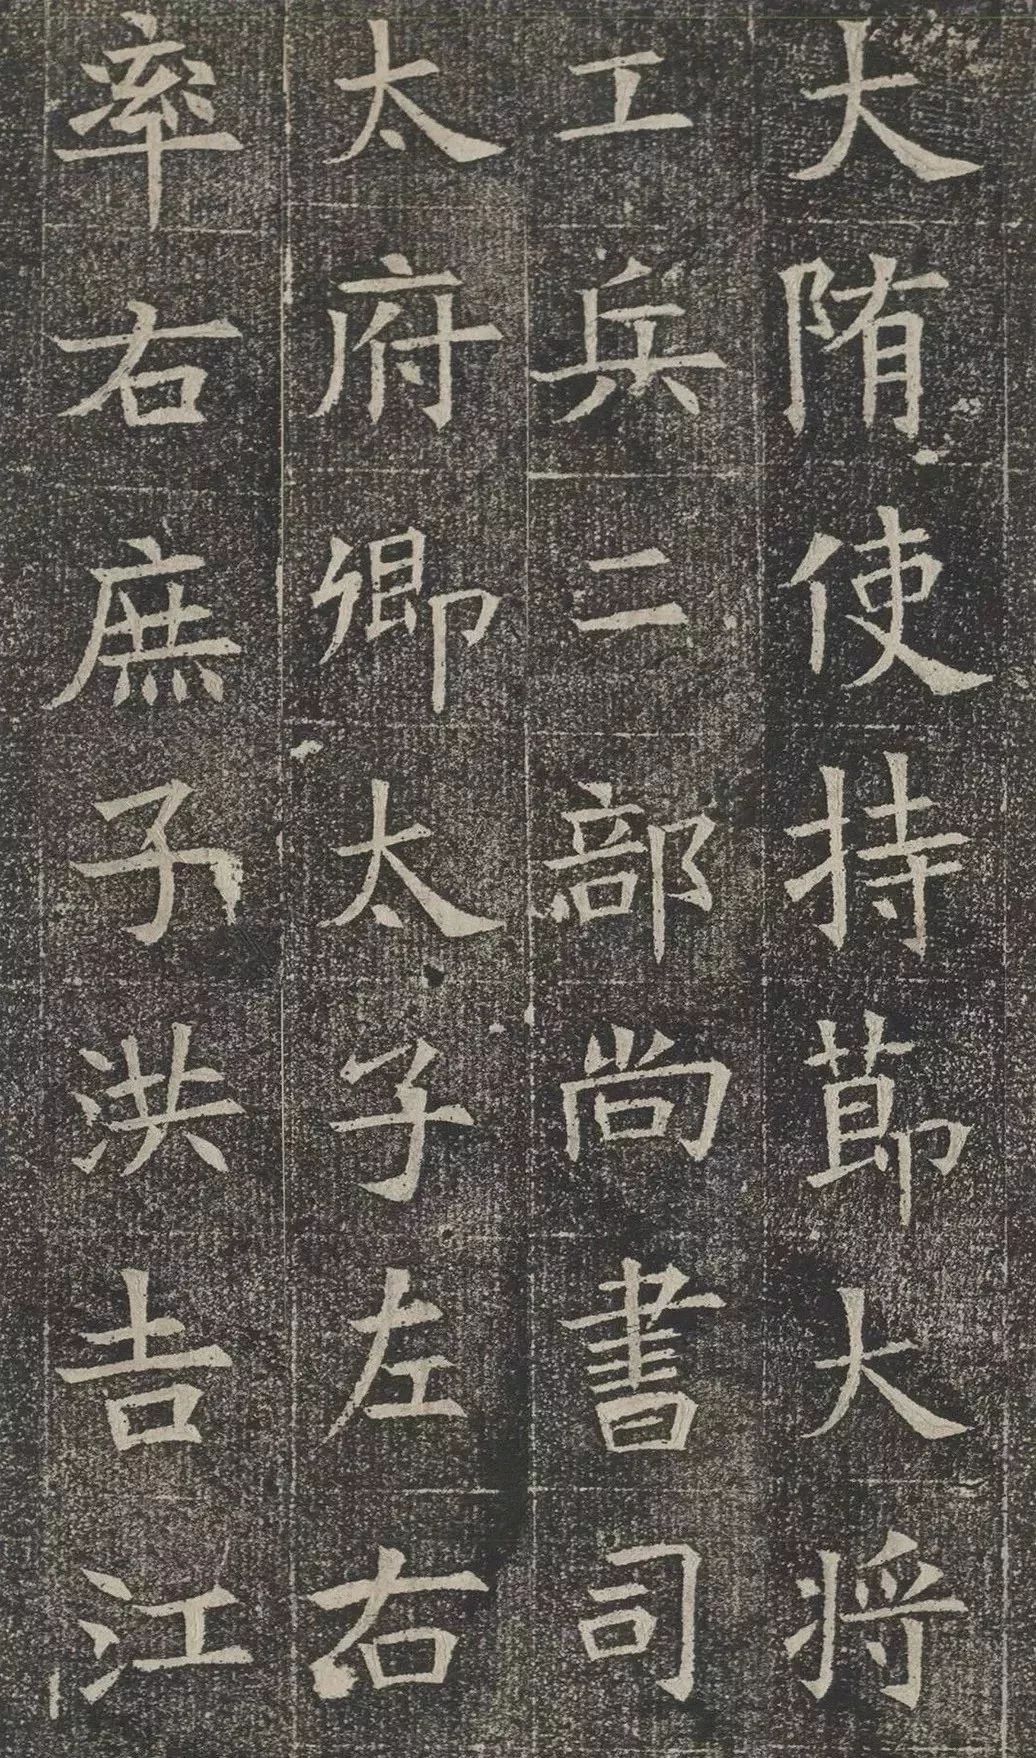 大陏使持莭大將
工兵二部尚書司
太府卿太子左右
率右庶子洪吉江